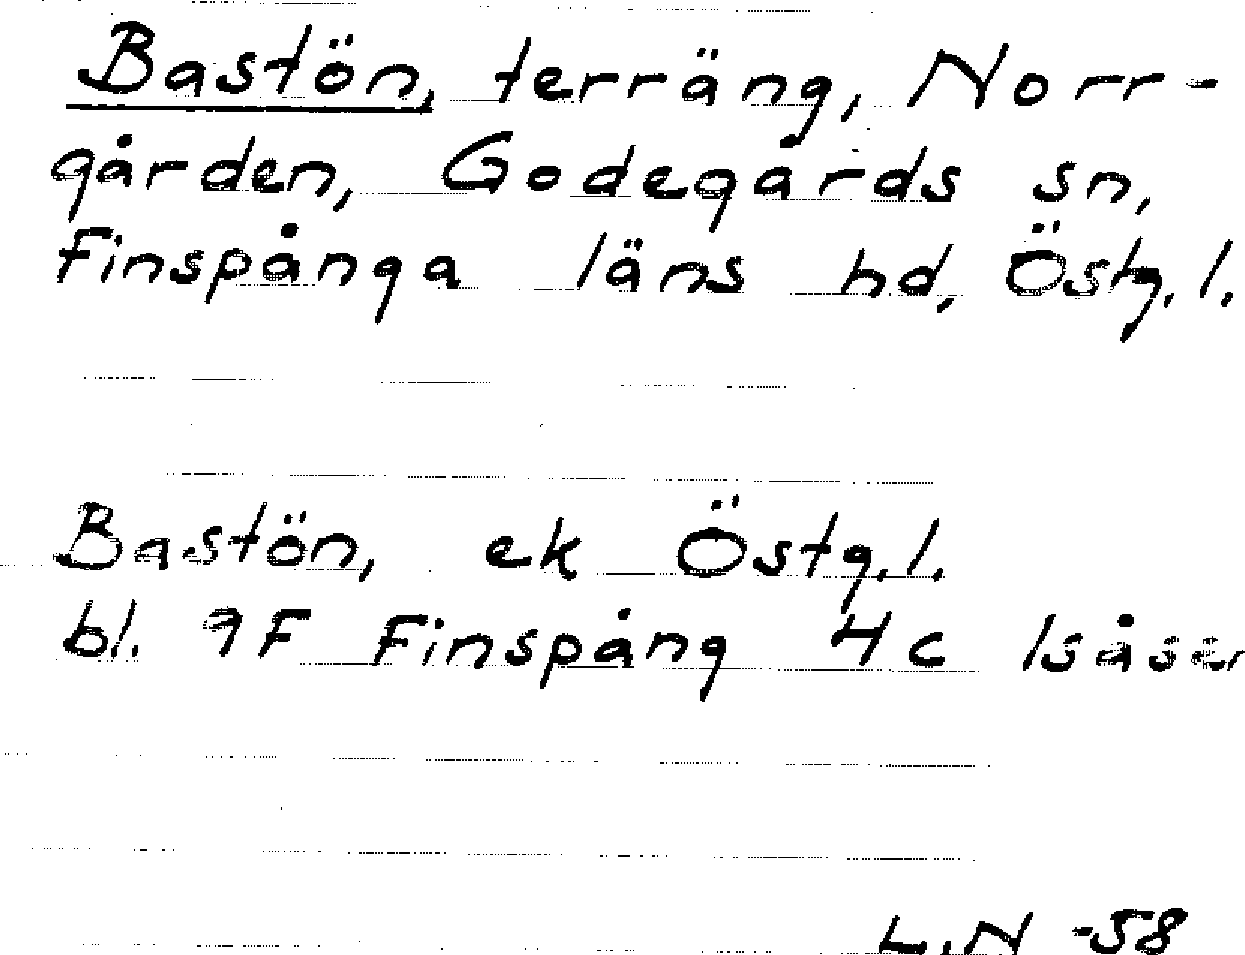 Bastön, terräng, Norr-
gården, Godegårds sn,
Finspånga läns hd, Östg. l.
Bastön, ek Östg. l.
bl. 9F Finspång 4c Isåsen
L.N -58